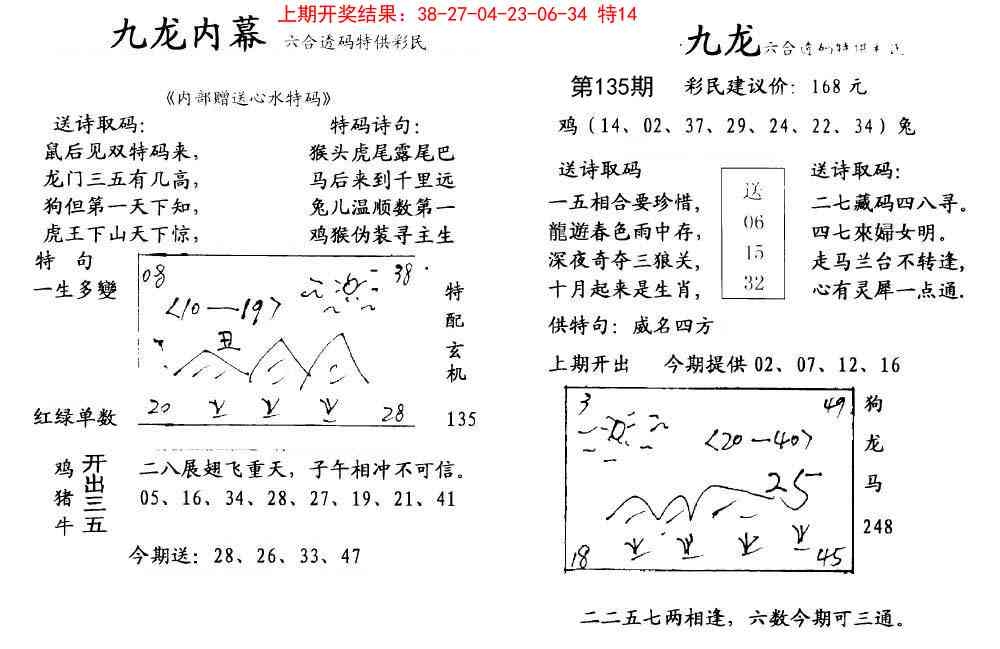 上期开奖结果：38-27-04-23-06-34 特14
九龙内幕 六合透码特供彩民
《内部赠送心水特码》
送诗取码：
鼠后见双特码来，
龙门三五有几高，
狗但第一天下知，
虎王下山天下惊，
特码诗句：
猴头虎尾露尾巴
马后来到千里远
兔儿温顺数第一
鸡猴伪装寻主生
特 句
一生多變
红绿单数
08
38
〈10—19〉
丑
20
28
特配玄机
135
鸡猪牛
开出三五
二八展翅飞重天，子午相冲不可信。
05、16、34、28、27、19、21、41
今期送：28、26、33、47
九龙 六合透码特供
第135期 彩民建议价：168元
鸡（14、02、37、29、24、22、34）兔
送诗取码
一五相合要珍惜，
龍遊春色雨中存，
深夜奇夺三狼关，
十月起来是生肖，
送
06
15
32
送诗取码：
二七藏码四八寻。
四七來婦女明。
走马兰台不转逢，
心有灵犀一点通.
供特句：威名四方
上期开出 今期提供02、07、12、16
3
49
〈20—40〉
25
18
45
狗
龙
马
248
二二五七两相逢，六数今期可三通。